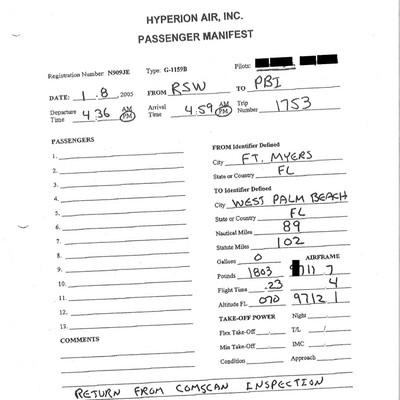 HYPERION AIR, INC.
PASSENGER MANIFEST
Registration Number: N909JE Type: G-1159B Pilots:
DATE: 1 . 8 , 2005 FROM RSW TO PBI
Departure Time 4:36 AM PM Arrival Time 4:59 AM PM Trip Number 1753
PASSENGERS
1.
2.
3.
4.
5.
6.
7.
8.
9.
10.
11.
12.
13.
COMMENTS
FROM Identifier Defined
City FT. MYERS
State or Country FL
TO Identifier Defined
City WEST PALM BEACH
State or Country FL
Nautical Miles 89
Statute Miles 102
Gallons 0 AIRFRAME
Pounds 1803 9711 7
Flight Time .23 .4
Altitude FL 070 9712 1
TAKE-OFF POWER Night
Flex Take-Off T/L /
Min Take-Off IMC
Condition Approach
RETURN FROM COMSCAN INSPECTION